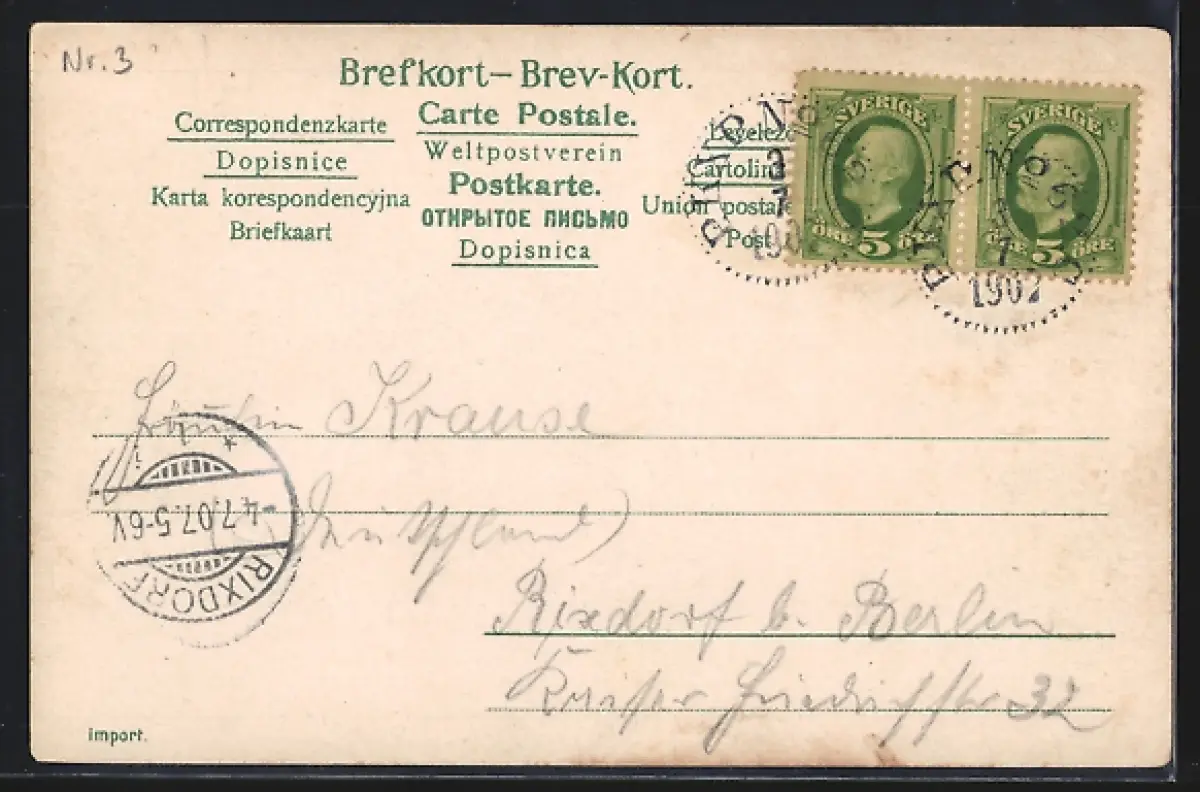 Nr. 3
Brefkort – Brev-Kort.
Carte Postale.
Weltpostverein
Postkarte.
ОТКРЫТОЕ ПИСЬМО
Dopisnica
Correspondenzkarte
Dopisnice
Karta korespondencyjna
Briefkaart
Cartolin
Union postale
Post
SVERIGE
ÖRE 5 ÖRE
SVERIGE
ÖRE 5 ÖRE
PKXP. No
3
7
190
PKXP. No
7
1907
Fräulein Krause
(Deutschland)
Rixdorf b. Berlin
Kaiser Friedrichstr 32
RIXDORF
4.7.07.5-6V.
import.